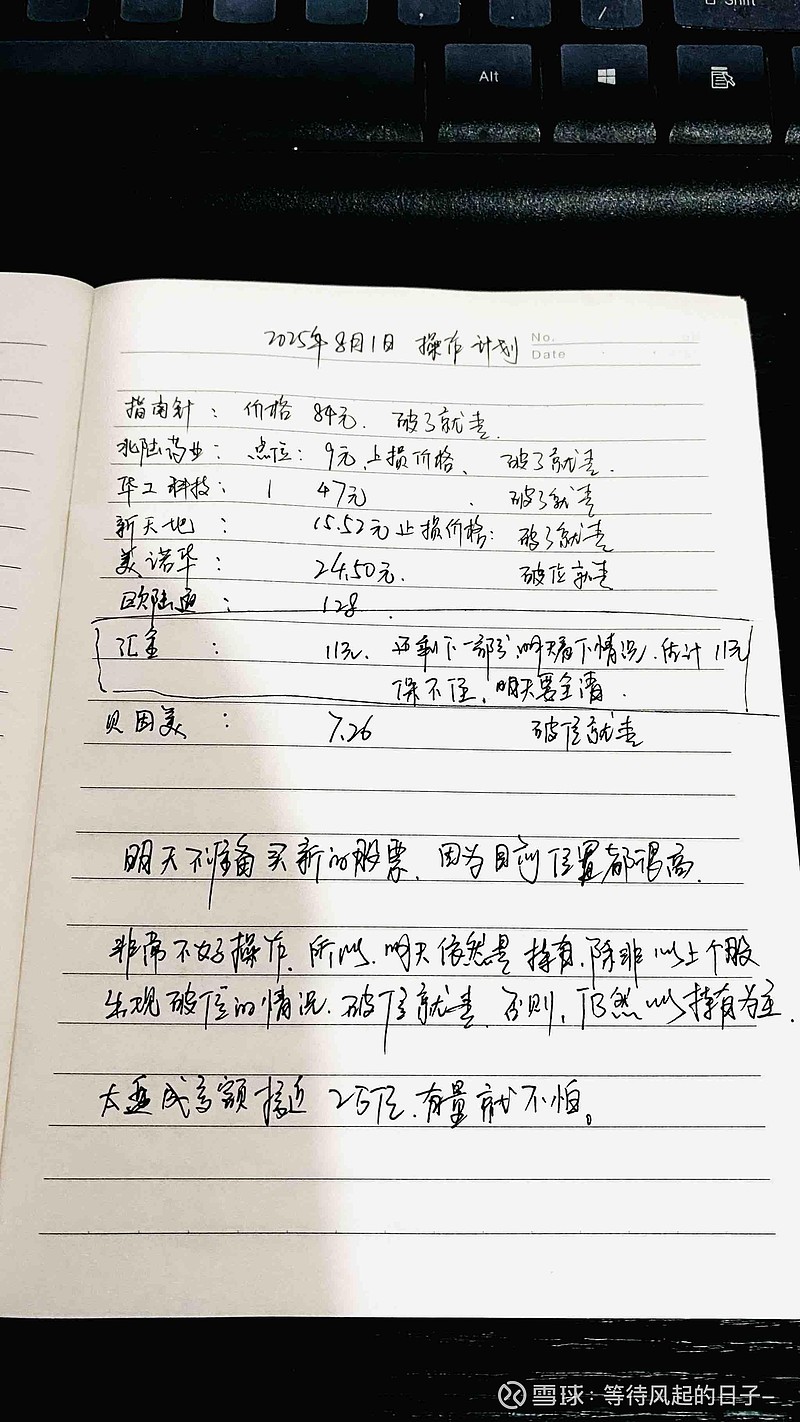 Shift
Alt
2025年8月1日 操作计划
No.
Date
指南针： 价格 84元. 破了就走.
北陆药业： 点位：9元止损价格、 破了就走.
华工科技： 1 47元 . 破了就走
新天地： 15.52元止损价格： 破了就走
美诺华： 24.50元. 破位就走
欧陆通： 128 .
汇金： 11元. 还剩下一部分，明天看下情况.估计11元
保不住，明天要全清.
贝因美： 7.26 破位就走
明天不准备买新的股票、因为目前位置都很高.
非常不好操作、所以、明天依然是持有、除非以上个股
出现破位的情况.破位就走.否则，仍然以持有为主.
大盘成交额接近2万亿.有量就不怕。
雪球：等待风起的日子-